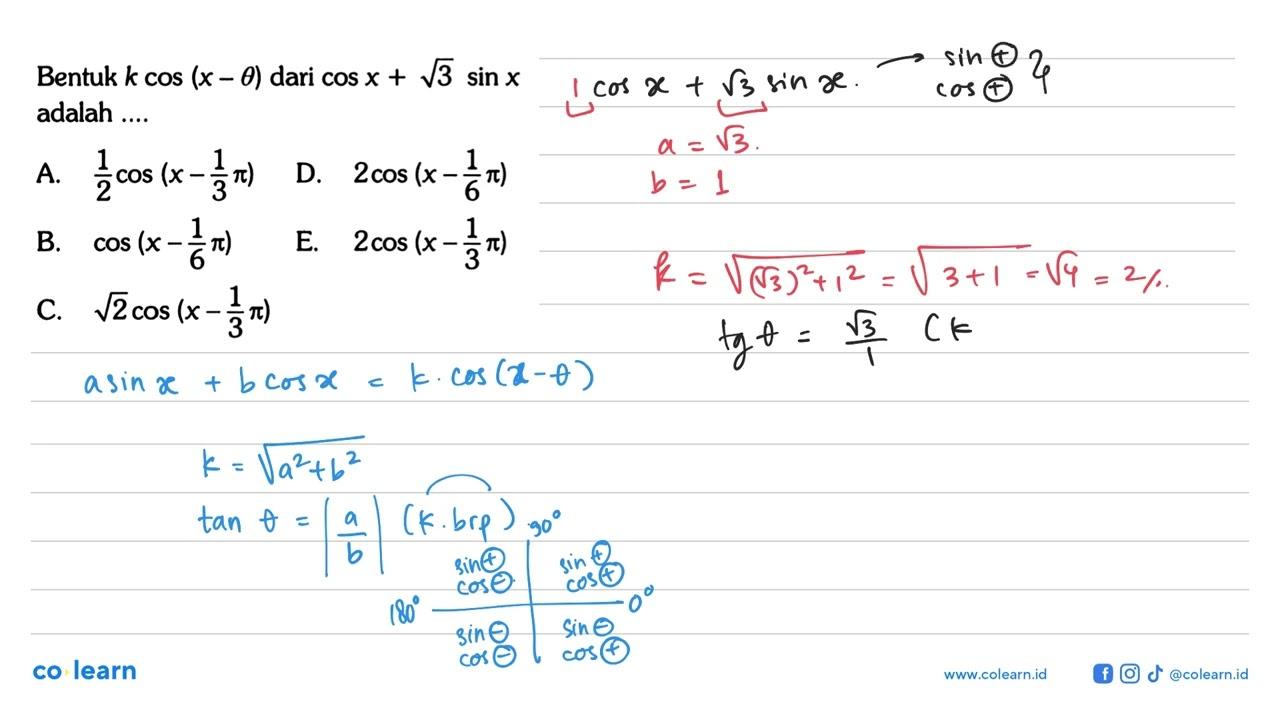 Bentuk k cos (x – θ) dari cos x + √3 sin x
adalah ....
A. 1/2 cos (x – 1/3 π) D. 2cos (x – 1/6 π)
B. cos (x – 1/6 π) E. 2cos (x – 1/3 π)
C. √2 cos (x – 1/3 π)
1 cos x + √3 sin x. → sin ⊕
cos ⊕
a = √3.
b = 1
k = √((√3)² + 1²) = √(3+1) = √4 = 2
tg θ = √3/1 (k
a sin x + b cos x = k. cos(x – θ)
k = √(a² + b²)
tan θ = |a/b| (k. brp)
90°
sin ⊕ sin ⊕
cos ⊖ cos ⊕
180° 0°
sin ⊖ sin ⊖
cos ⊖ cos ⊕
co learn
www.colearn.id @colearn.id